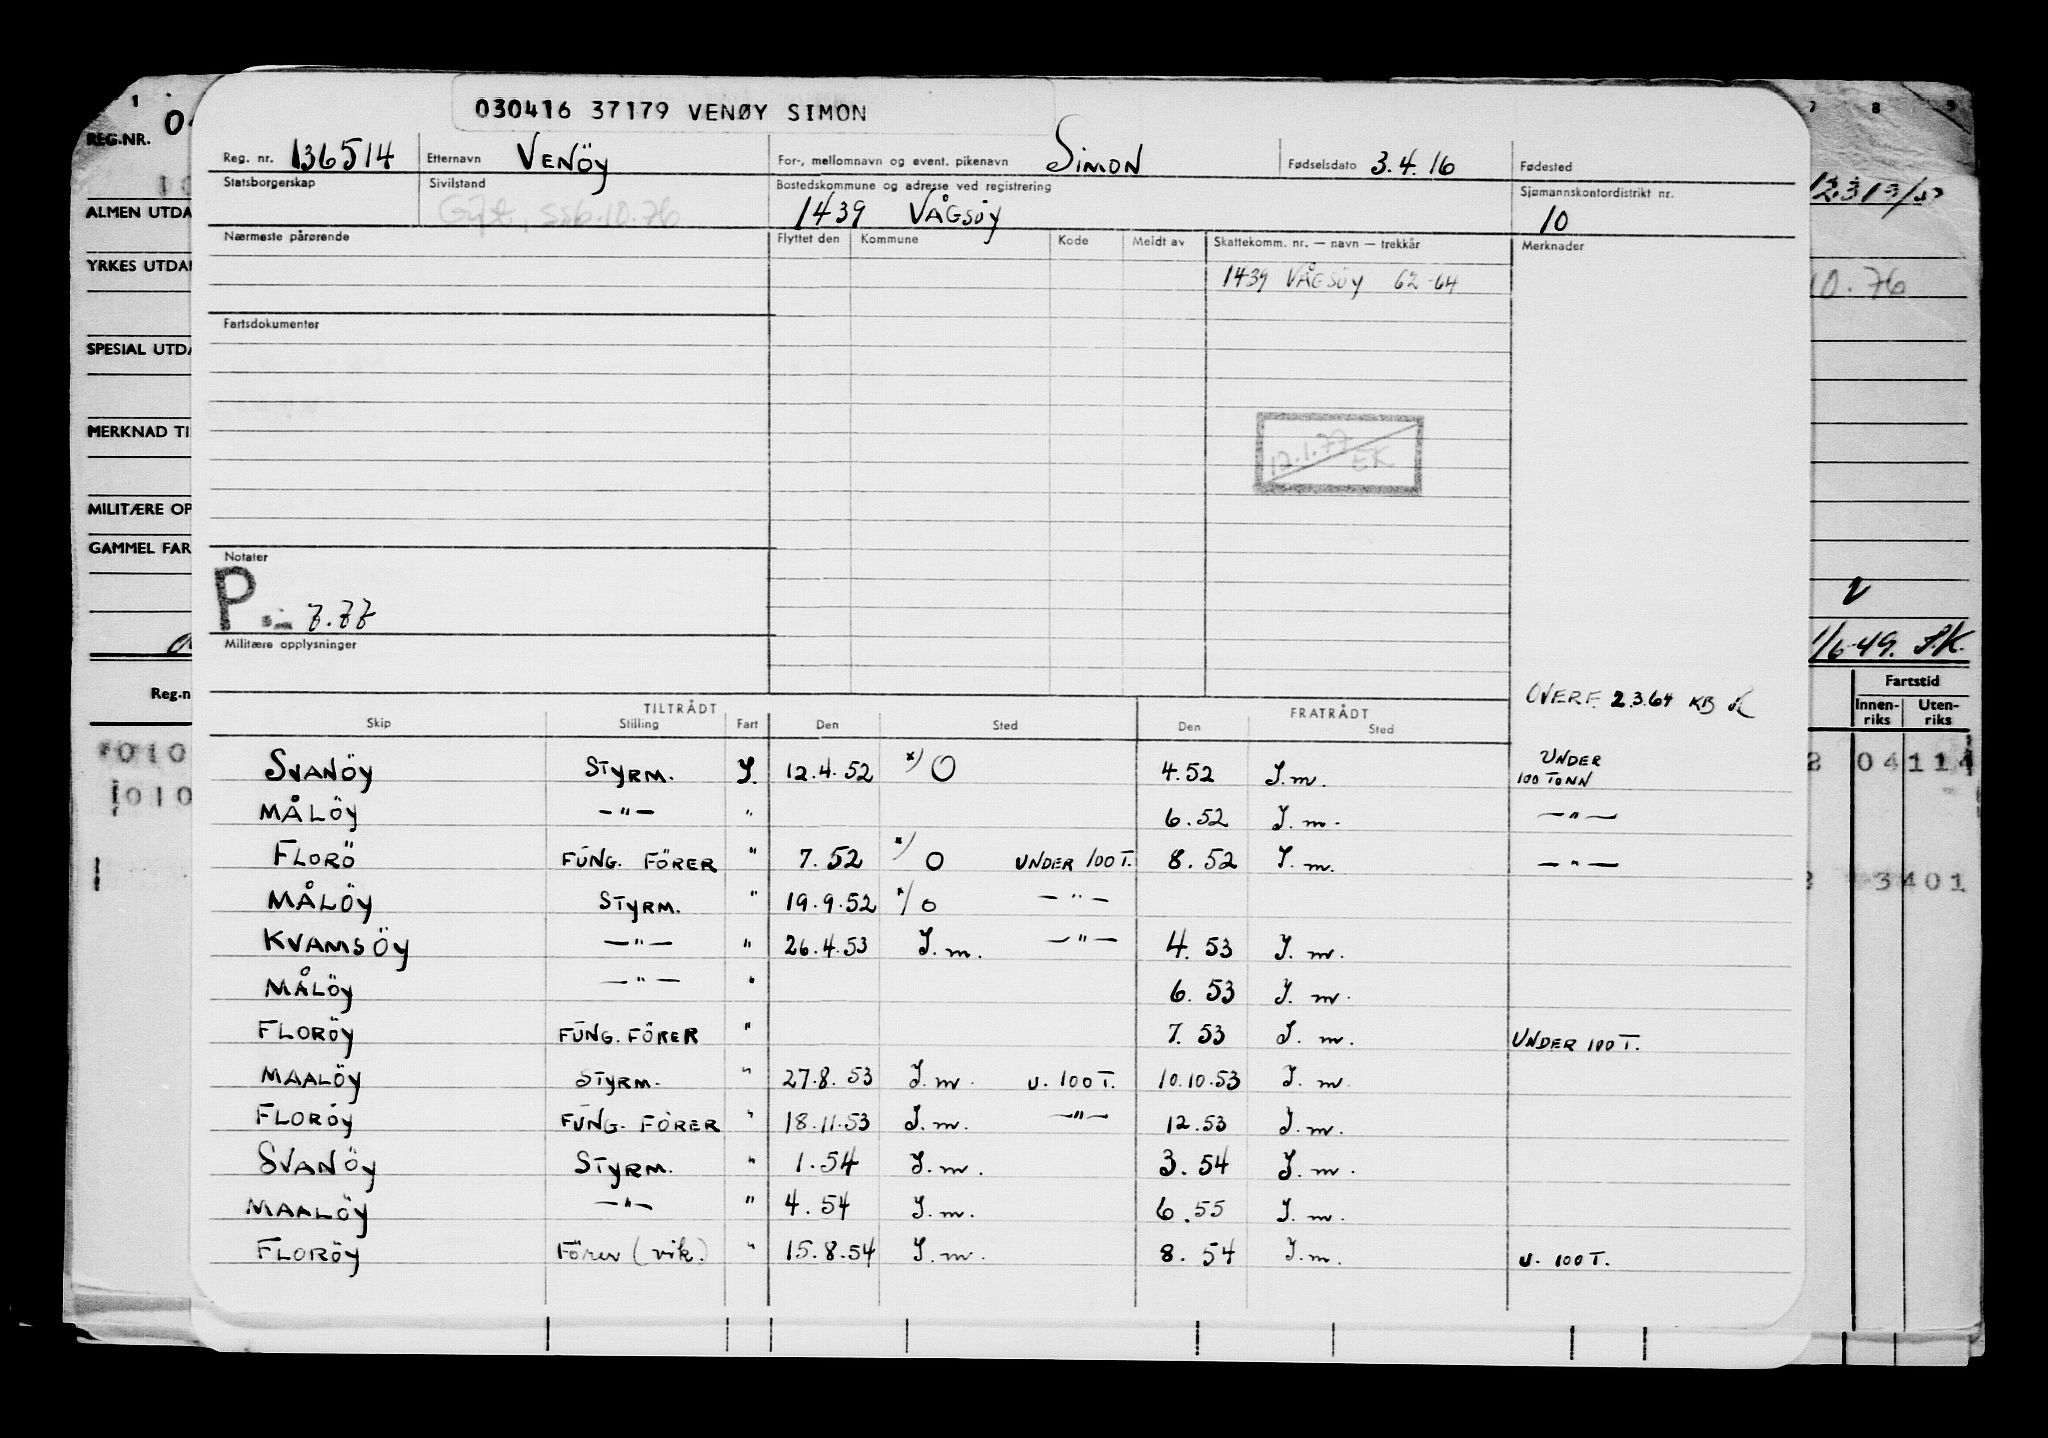 030416 37179 VENØY SIMON
Reg. nr. 136514 Etternavn VENÖY For-, mellomnavn og event. pikenavn SIMON Fødselsdato 3.4.16 Fødested
Statsborgerskap Sivilstand Gift, ssb.10.76 Bostedskommune og adresse ved registrering 1439 VÅGSÖY Sjømannskontordistrikt nr. 10
Nærmeste pårørende Flyttet den Kommune Kode Meldt av Skattekomm. nr. — navn — trekkår Merknader
1439 VÅGSÖY 62-64
Fartsdokumenter
12.1.77 EK
Notater
P 7.77
Militære opplysninger
OVERF. 2.3.64 KB
TILTRÅDT FRATRÅDT
Skip Stilling Fart Den Sted Den Sted
SVANÖY STYRM. I. 12.4.52 x) O 4.52 I.m. UNDER 100 TONN
MÅLÖY —"— " 6.52 I.m. —"—
FLORÖ FUNG. FÖRER " 7.52 x) O UNDER 100 T. 8.52 I.m. —"—
MÅLÖY STYRM. " 19.9.52 x) O —"—
KVAMSÖY —"— " 26.4.53 I.m. —"— 4.53 I.m.
MÅLÖY —"— " 6.53 I.m.
FLORÖY FUNG. FÖRER " 7.53 I.m. UNDER 100 T.
MAALÖY STYRM. " 27.8.53 I.m. U. 100 T. 10.10.53 I.m.
FLORÖY FUNG. FÖRER " 18.11.53 I.m. —"— 12.53 I.m.
SVANÖY STYRM. " 1.54 I.m. 3.54 I.m.
MAALÖY —"— " 4.54 I.m. 6.55 I.m.
FLORÖY Förer (vik.) " 15.8.54 I.m. 8.54 I.m. U. 100 T.
1
REG.NR. 0
ALMEN UTDA
YRKES UTDA
SPESIAL UTDA
MERKNAD TI
MILITÆRE OP
GAMMEL FAR
Reg.n
010
010
7 8 9
10.76
1/6-49. S.K.
Fartstid
Innenriks Utenriks
2 04 114
3401